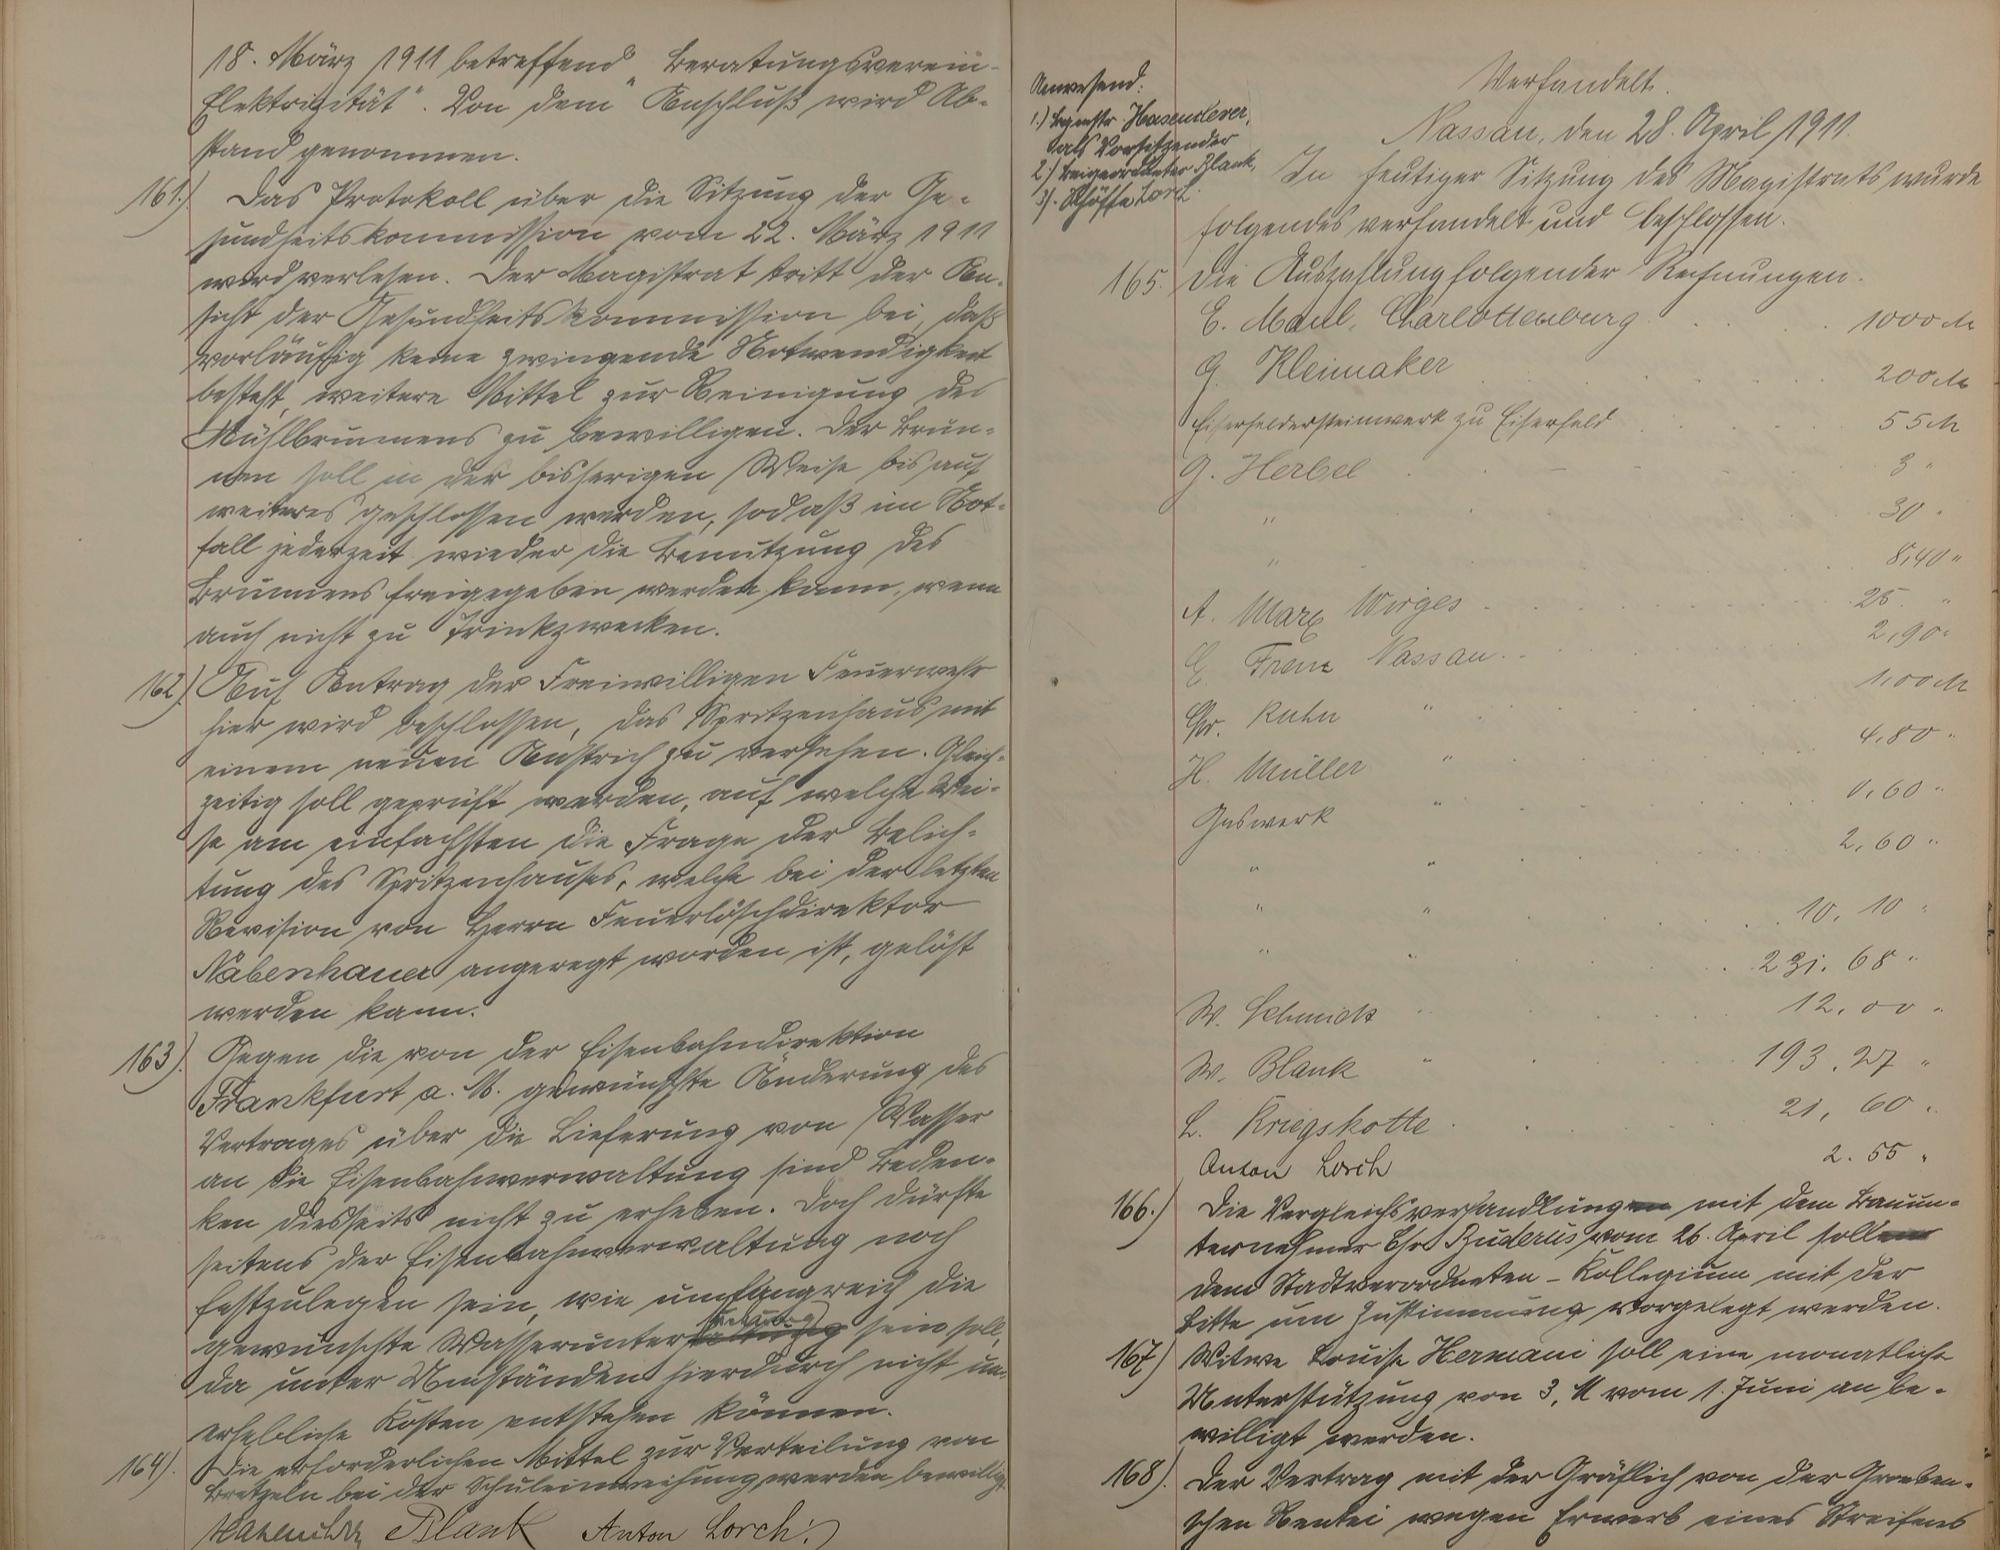 18. März 1911 betreffend „Beratungsverein
Elektrizität". Von dem Anschluß wird Ab-
stand genommen.
161.) Das Protokoll über die Sitzung der Ge-
sundheitskommission vom 22. März 1911
wird verlesen. Der Magistrat tritt der An-
sicht der Gesundheitskommission bei, daß
vorläufig keine zwingende Notwendigkeit
besteht, weitere Mittel zur Reinigung des
Mühlbrunnens zu bewilligen. Der Brun-
nen soll in der bisherigen Weise bis auf
weiteres geschlossen werden, sodaß im Not-
fall jederzeit wieder die Benutzung des
Brunnens freigegeben werden kann, wenn
auch nicht zu Trinkzwecken.
162.) Auf Antrag der Freiwilligen Feuerwehr
hier wird beschlossen, das Spritzenhaus mit
einem neuen Anstrich zu versehen. Gleich-
zeitig soll geprüft werden, auf welche Wei-
se am einfachsten die Frage der Belich-
tung des Spritzenhauses, welche bei der letzten
Revision von Herrn Feuerlöschdirektor
Nabenhauer angeregt worden ist, gelöst
werden kann.
163.) Gegen die von der Eisenbahndirektion
Frankfurt a. M. gewünschte Änderung des
Vertrages über die Lieferung von Wasser
an die Eisenbahnverwaltung sind Beden-
ken diesseits nicht zu erheben. Doch dürfte
seitens der Eisenbahnverwaltung noch
festzulegen sein, wie umfangreich die
gewünschte Wasserunter sein soll,
da unter Umständen hierdurch nicht un-
erhebliche Kosten entstehen können.
164.) Die erforderlichen Mittel zur Verteilung von
Bretzeln bei der Schuleinweihung werden bewilligt.
Hasenclever Blank Anton Lorch
Anwesend:
1.) Bgmstr Hasenclever,
als Vorsitzender
2.) Beigeordneter Blank,
3). Schöffe Lorch
Verhandelt.
Nassau, den 28. April 1911.
In heutiger Sitzung des Magistrats wurde
folgendes verhandelt und beschlossen.
165. Die Auszahlung folgender Rechnungen.
E. Maul, Charlottenburg 1000 M
G. Kleimaker 200 M
Eiserfeldersteinwerk zu Eiserfeld 55 M
G. Herbel 3 "
" 30 "
" 8,40 "
A. Marx Wirges 25. "
C. Frenz Nassau 2,90 "
Chr. Kuhn " 1,00 M
H. Müller " 4,80 "
Gaswerk " 0,60 "
" " 2,60 "
" " 10,10 "
" " 231,68 "
W. Schmidt " 12,00 "
W. Blank " 193,27 "
L. Kriegskotte 21,60 "
Anton Lorch 2.55 "
166.) Die Vergleichsverhandlung mit dem Bauun-
ternehmer Chr. Buderus vom 26. April soll
dem Stadtverordneten-Kollegium mit der
Bitte um Zustimmung vorgelegt werden.
167.) Witwe Louise Hermani soll eine monatliche
Unterstützung von 3, M vom 1. Juni an be-
willigt werden.
168.) Der Vertrag mit der Gräflich von der Groeben-
schen Rentei wegen Erwerb eines Streifens